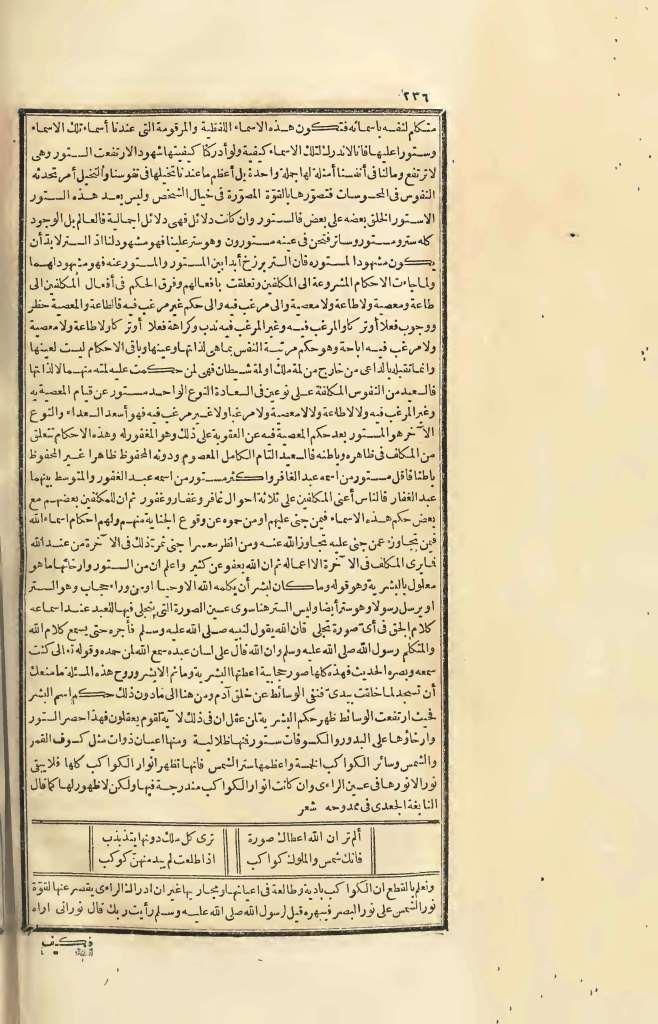 ٢٣٦
متكلم لنفسه بأسمائه فتكون هذه الاسماء اللفظية والمرقومة التى عندنا أسماء تلك الاسماء
وستورا عليها فانا لاندرك لتلك الاسماء كيفية ولو أدركنا كيفيتها شهودا لارتفعت الستور وهى
لا ترتفع ومالنا فى أنفسنا أمثلة لها جملة واحدة بل أعظم ما عندنا تخيلها فى نفوسنا والتخيل أمر تحدثه
النفوس فى المحسوسات فتصورها بالقوّة المصوّرة فى خيال الشخص وليس بعد هذه الستور
الا ستور الخلق بعضه على بعض فالستور وان كانت دلائل فهى دلائل اجمالية فالعالم بل الوجود
كله ستر ومستور وساتر فنحن فى عينه مستورون وهو ستر علينا فهو مشهود لنا اذ الستر لابدّ أن
يكون مشهود المستوره فان الستر برزخ أبدا بين المستور والمستور عنه فهو مشهود لهما
ولما جاءت الاحكام المشروعة الى المكلفين وتعلقت بافعالهم وفرق الحكم فى أفعال المكلفين الى
طاعة ومعصية ولا طاعة ولا معصية والى مرغب فيه والى حكم غير مرغب فيه فالطاعة والمعصية حظر
ووجوب فعلا أو تركا والمرغب فيه وغير المرغب فيه ندب وكراهة فعلا أو تركا ولا طاعة ولا معصية
ولا مرغب فيه اباحة وهو حكم مرتبة النفس بما هى لذاتها وعينها وباقى الاحكام ليست لعينها
وانما تقبله بالداعى من خارج من لمة ملك أو لمة شيطان فهى لمن حكمت عليه لمته منهما لا لذاتها
فالسعيد من النفوس المكلفة على نوعين فى السعادة النوع الواحد مستور عن قيام المعصية به
وغير المرغب فيه ولا لاطاعة ولا لا معصية ولا مرغبا ولا غير مرغب فيه فهو أسعد السعداء والنوع
الآخر هو المستور بعد حكم المعصية فيه عن العقوبة على ذلك وهو المغفور له وهذه الاحكام تتعلق
من المكلف فى ظاهره وباطنه فالسعيد التام الكامل المعصوم ودونه المحفوظ ظاهرا غير المحفوظ
باطنا فاقل مستور من اسمه عبد الغافر واكثر مستور من اسمه عبد الغفور والمتوسط بينهما
عبد الغفار فالناس أعنى المكلفين على ثلاثة احوال غافر وغفار وغفور ثم ان للمكلفين بعضهم مع
بعض حكم هذه الاسماء فيمن جنى عليهم او من حموه عن وقوع الجناية منهم ولهم احكام اسماء الله
فمن تجاوز عمن جنى عليه تجاوز الله عنه ومن انظر معسرا جنى ثمرة ذلك فى الآخرة من عند الله
فما رى المكلف فى الآخرة الا اعماله ثم ان الله يعفو عن كثير واعلم ان من الستور وارخائها ما هو
معلول بالبشرية وهو قوله وما كان لبشر أن يكلمه الله الا وحيا او من وراء حجاب وهو الستر
او يرسل رسولا وهو ستر أيضا وليس الستر هنا سوى عين الصورة التى يتجلى فيها للعبد عند اسماعه
كلام الحق فى أىّ صورة تجلى فان الله يقول لنبيه صلى الله عليه وسلم فأجره حتى يسمع كلام الله
والمتكلم رسول الله صلى الله عليه وسلم وان الله قال على لسان عبده سمع الله لمن حمده وقوله تعالى كنت
سمعه وبصره الحديث فهذه كلها صور حجابية اعطتها البشرية وما ثم الا بشر وروح هذه المسئلة ما منعك
أن تسجد لما خلقت بيدى فنفى الوسائط عن خلق آدم ومن هنا الى ما دون ذلك حكم اسم البشر
فحيث ارتفعت الوسائط ظهر حكم البشرية لمن عقل ان فى ذلك لآية لقوم يعقلون فهذا حصر الستور
وارخاؤها على البدور والكسوفات ستور فمنها ظلالية ومنها اعيان ذوات مثل كسوف القمر
والشمس وسائر الكواكب الخمسة واعظمها ستر الشمس فانها تظهر انوار الكواكب كلها فلا يبقى
نور الا نورها فى عين الرائى وان كانت انوار الكواكب مندرجة فيها ولكن لا ظهور لها كما قال
النابغة الجعدى فى ممدوحه شعر
ألم تر ان الله اعطاك صورة ترى كل ملك دونها يتذبذب
فانك شمس والملوك كواكب اذا طلعت لم يبد منهن كوكب
ونعلم بالقطع ان الكواكب بادية وطالعة فى اعيانها ومجاريها غير ان ادراك الرائى يقصر عنها لقوّة
نور الشمس على نور البصر فيبهره قيل لرسول الله صلى الله عليه وسلم رأيت ربك قال نورانى اراه
فكيف